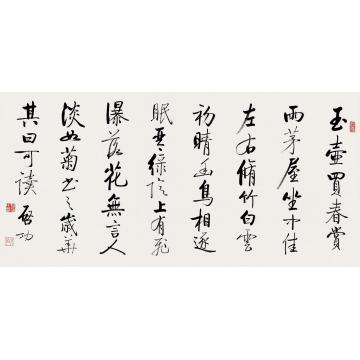 玉壺買春賞
雨茅屋坐中佳
左右脩竹白雲
初晴幽鳥相逐
眠琴綠陰上有飛
瀑落花無言人
淡如菊書之歲華
其曰可讀 啓功